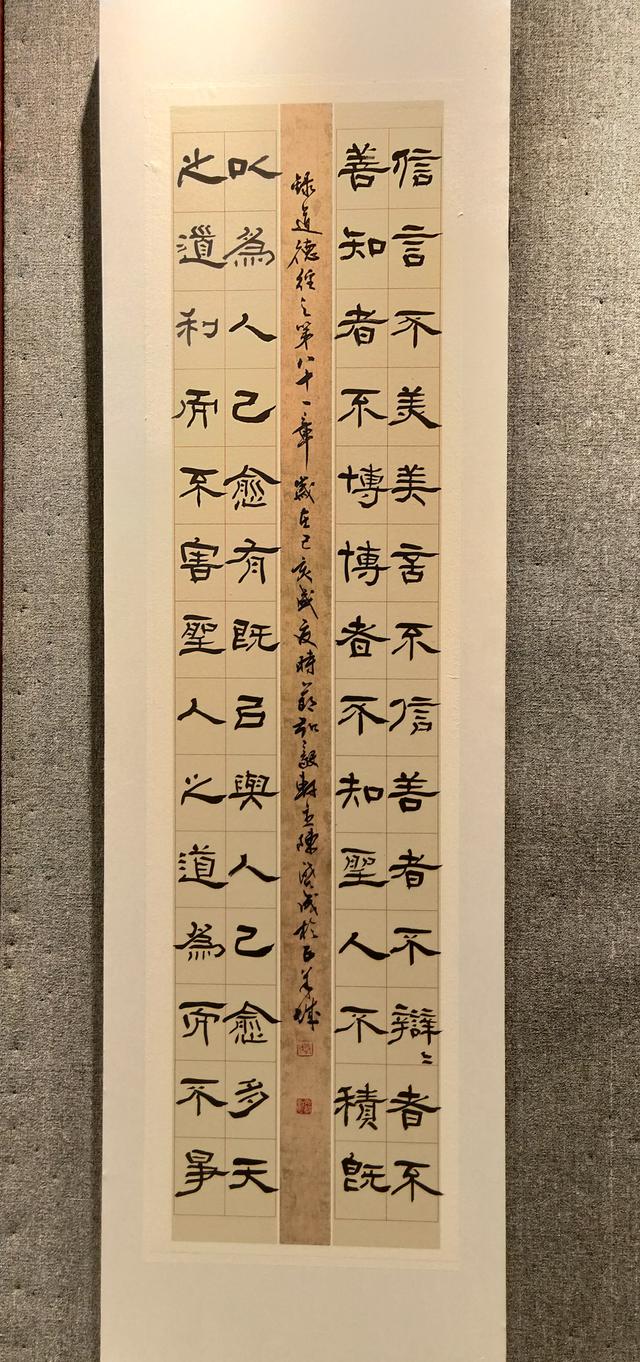 信言不美美言不信善者不辯〻者不
善知者不博博者不知聖人不積既
錄道德經之第八十一章歲在己亥盛夏時節弘毅軒主陳成於五羊城
以為人己愈有既㠯與人己愈多天
之道利而不害聖人之道為而不爭